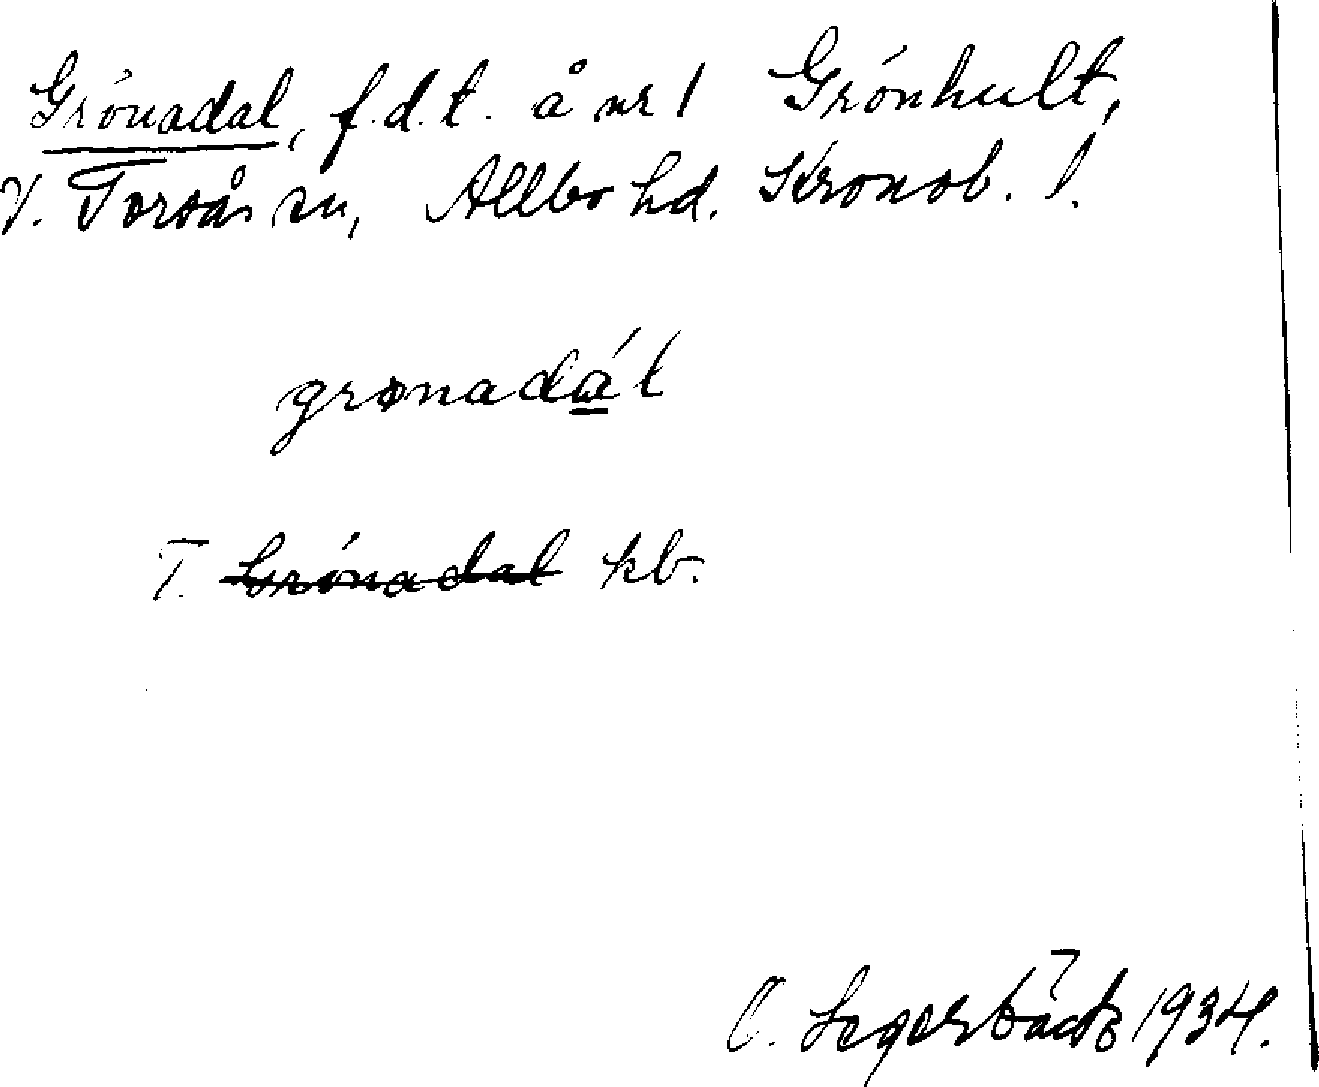 Grönadal, f.d.t. å nr 1 Grönhult,
V. Torsås sn, Allbo hd. Kronob. l.
grønadál
T. Grönadal kb.
C. Segerbäck 1934.